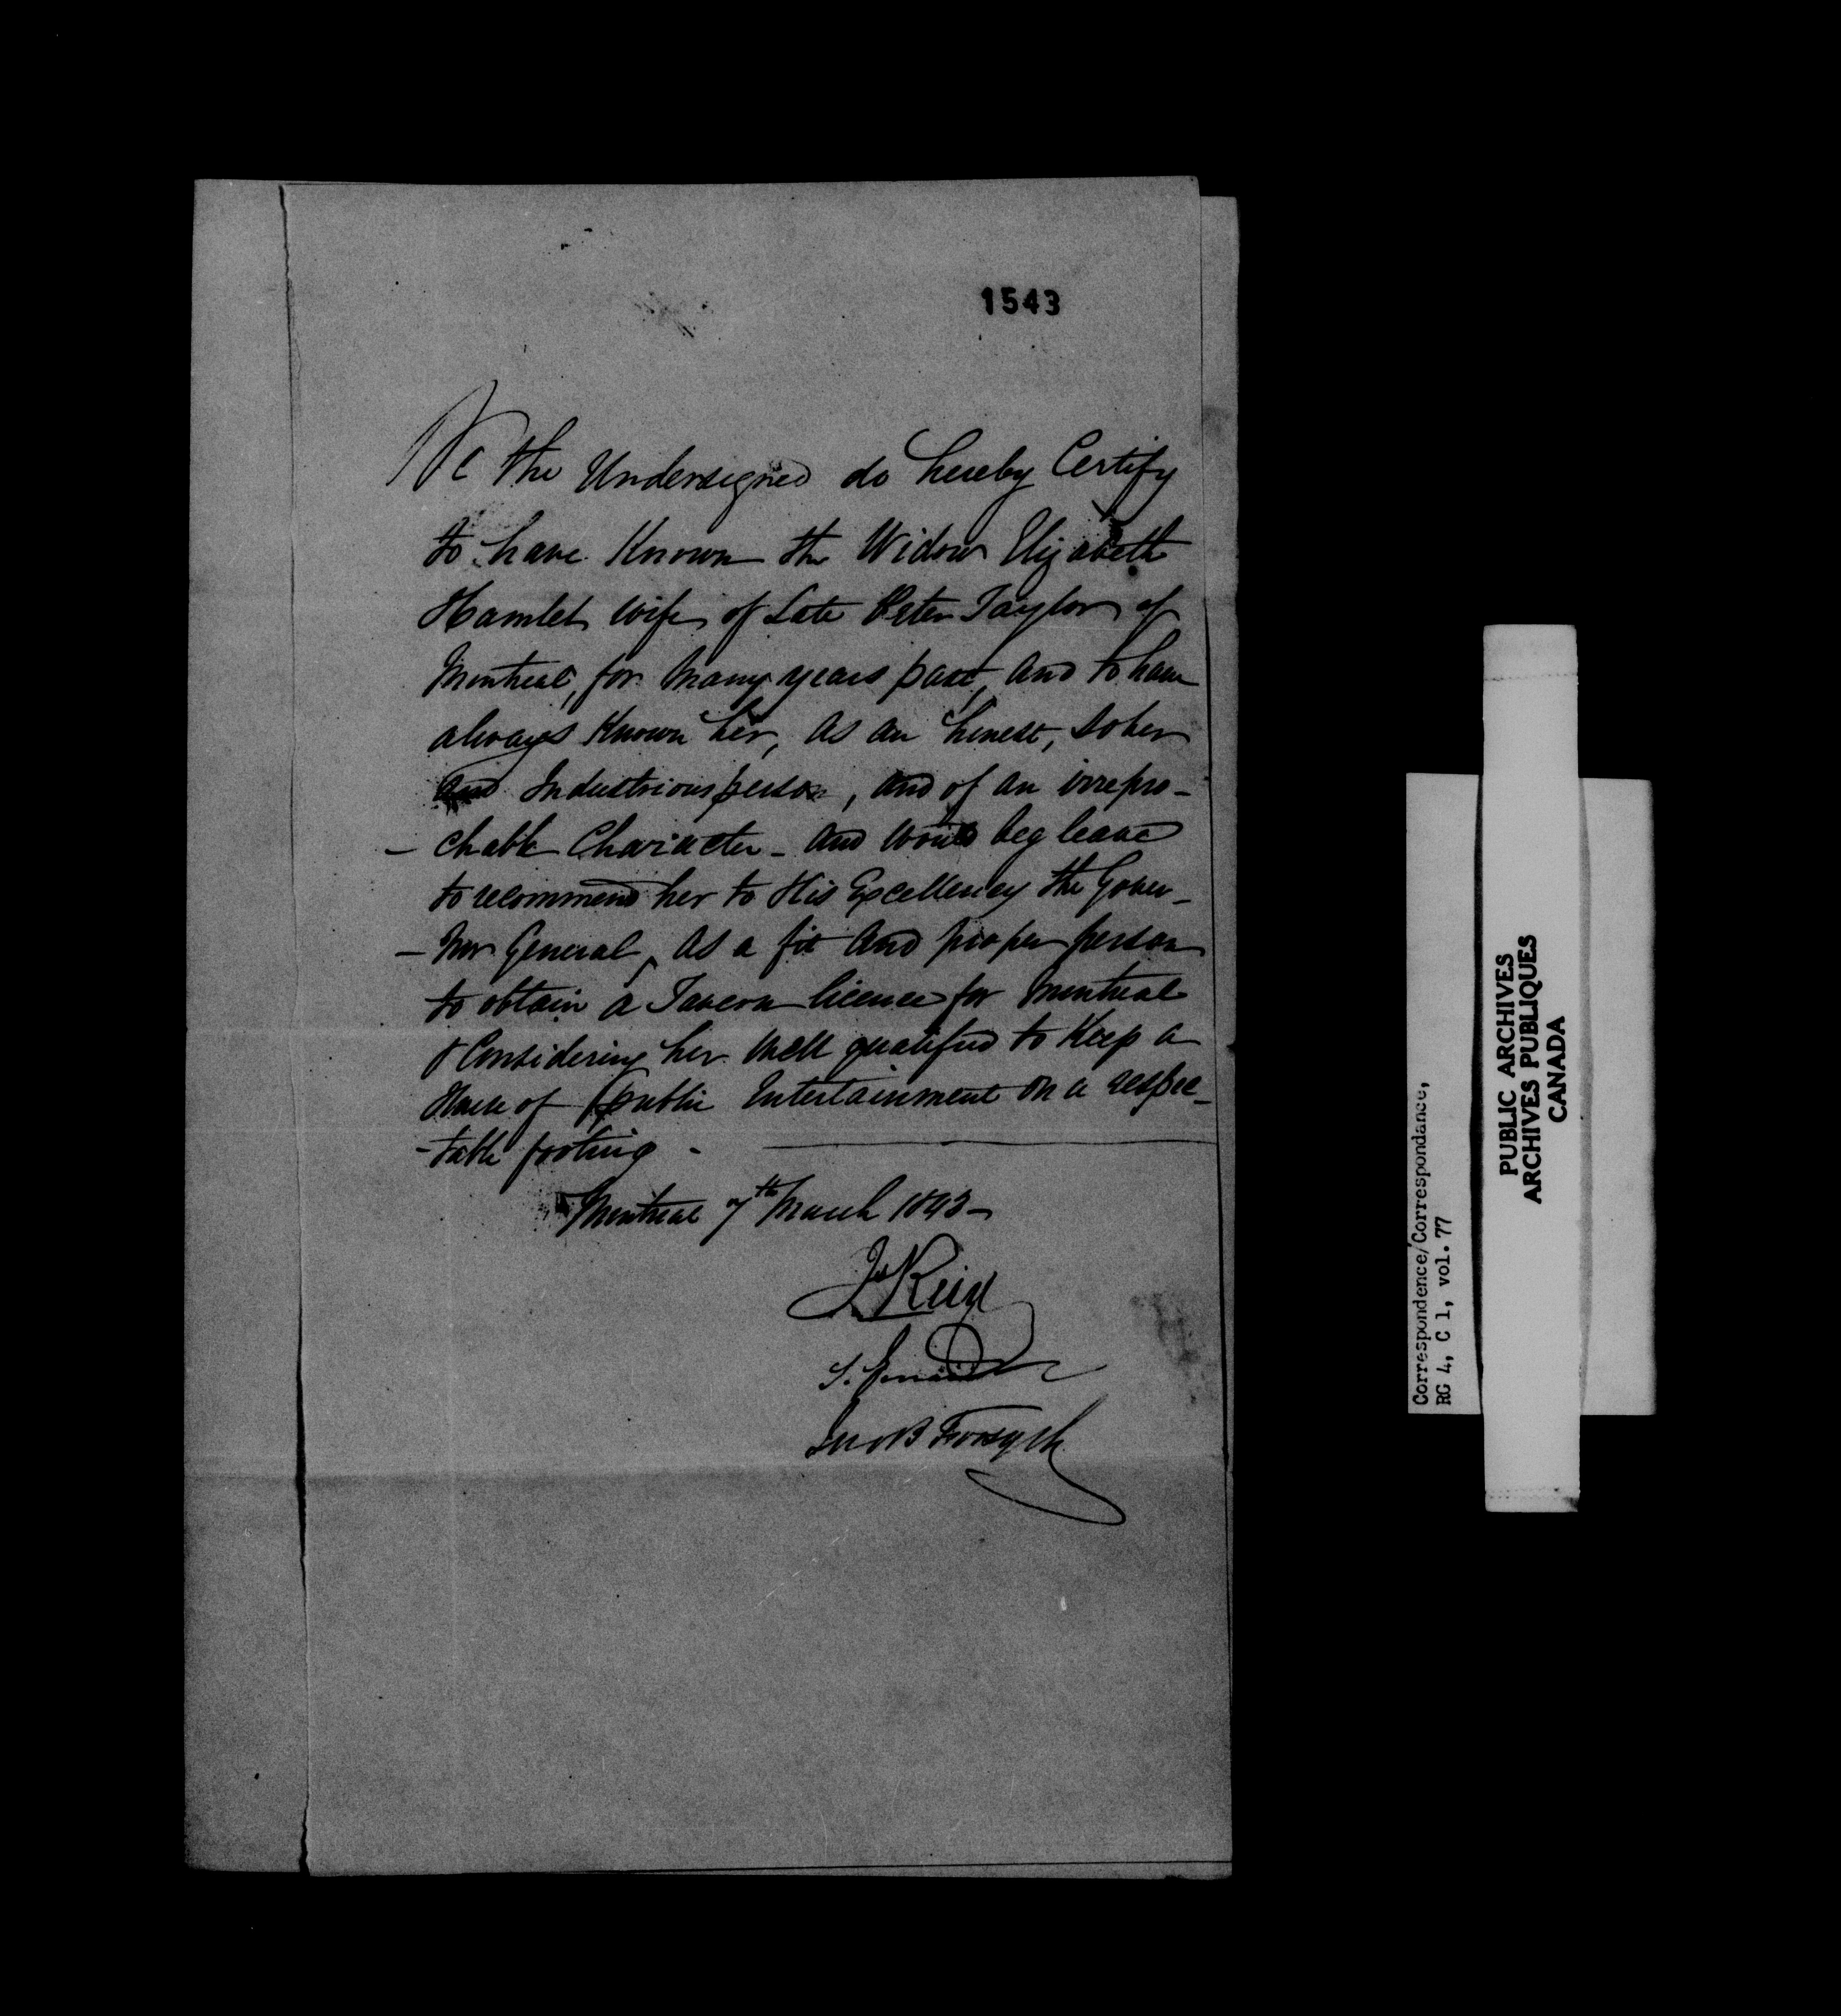 1543
We the Undersigned do hereby Certify
to have Known the Widow Elizabeth
Hamlet wife of Late Peter Taylor of
Montreal, for many years past, and to have
always Known her, as an honest, sober
and Industrious person, and of an irrepro-
- chable Character - and would beg leave
to recommend her to His Excellency the Gover-
- nor General, as a fit and proper person
to obtain a Tavern licence for Montreal
& Considering her well qualified to Keep a
House of public Entertainment on a respec-
- table footing -
Montreal 7th March 1843 -
Js Reid
Jno B Forsyth
Correspondence/Correspondance,
RG 4, C 1, vol. 77
PUBLIC ARCHIVES
ARCHIVES PUBLIQUES
CANADA